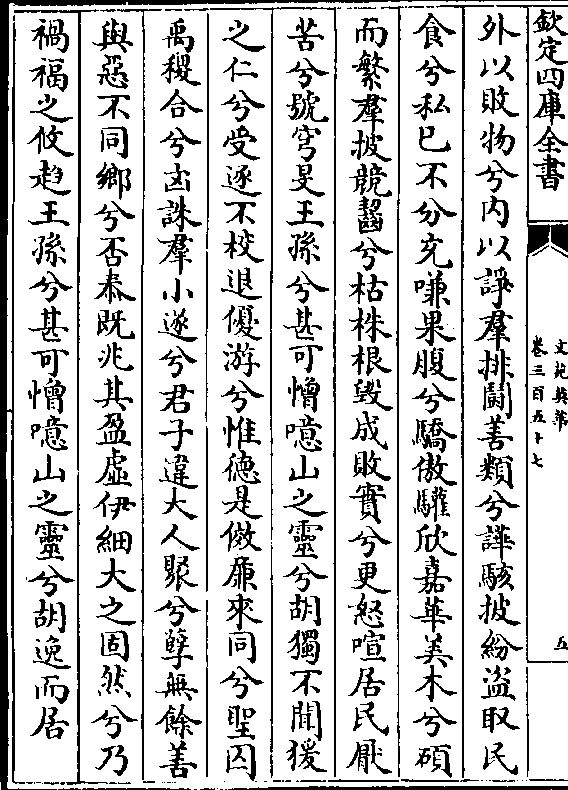 欽定四庫全書
文苑英華
卷三百五十七
五
外以敗物兮内以諍羣排鬬善類兮譁駭披紛盜取民
食兮私已不分充嗛果腹兮驕傲驩欣嘉華美木兮碩
而繁羣披競齧兮枯株根毁成敗實兮更怒喧居民厭
苦兮號穹旻王孫兮甚可憎噫山之靈兮胡獨不聞猨
之仁兮受逐不校退優游兮惟德是傚廉來同兮聖囚
禹稷合兮凶誅羣小遂兮君子違大人聚兮孽無餘善
與惡不同鄉兮否泰既兆其盈虛伊細大之固然兮乃
禍福之攸趨王孫兮甚可憎噫山之靈兮胡逸而居